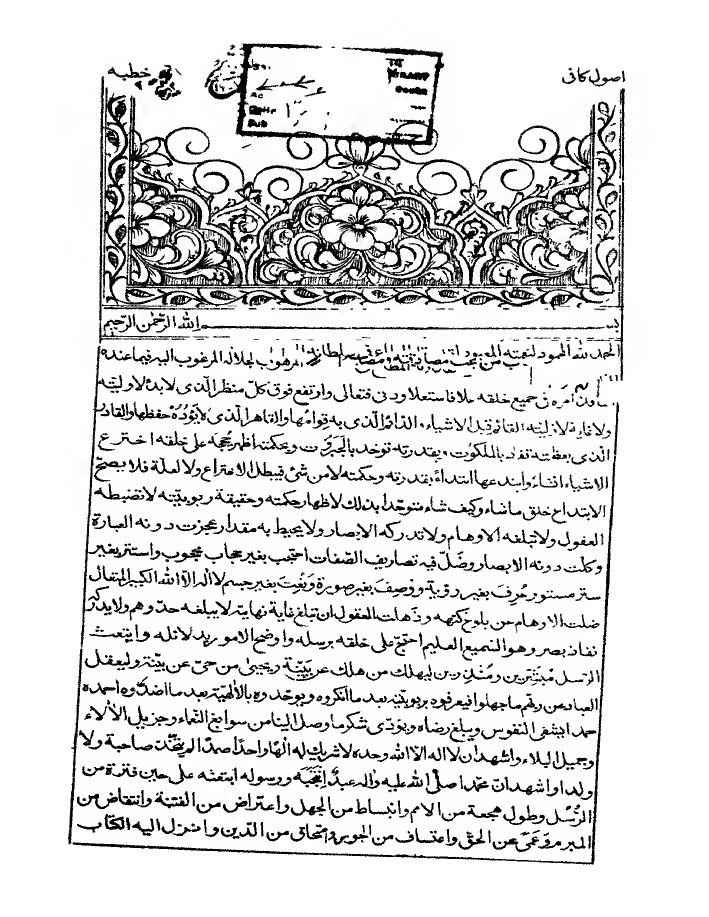 اصول كافى
خطبه
بسم الله الرّحمن الرّحيم
الحمد لله المحمود لنعمته المعبود لقدرته المرهوب لجلاله المرغوب اليه فيما عنده
امره فى جميع خلقه علا فاستعلا ودنى فتعالى وارتفع فوق كلّ منظر الّذى لا بدئ لا وليّته
ولا غاية لازليّته القائم قبل الاشياء والدّائم الّذى به قوامها والقاهر الّذى لا يؤده حفظها والقادر
الّذى بعظمته تفرد بالملكوت وبقدرته توحّد بالجبروت وبحكمته اظهر حججه على خلقه اخترع
الاشياء انشاءً وابتدعها ابتداءً بقدرته وحكمته لا من شئ فيبطل الاختراع ولا لعلّة فلا يصحّ
الابتداع خلق ما شاء وكيف شاء متوحّدا بذلك لاظهار حكمته وحقيقة ربوبيّته لا تضبطه
العقول ولا تبلغه الاوهام ولا تدركه الابصار ولا يحيط به مقدار عجزت دونه العبارة
وكلّت دونه الابصار وضلّ فيه تصاريف الصّفات احتجب بغير حجاب محجوب واستتر بغير
ستر مستور عُرِفَ بغير رؤية ووُصِفَ بغير صورة ونُعِتَ بغير جسم لا اله الّا الله الكبير المتعال
ضلت الاوهام عن بلوغ كنهه وذهلت العقول ان تبلغ غاية نهايته لا يبلغه حدّ وهم ولا يدركه
نفاذ بصر وهو السّميع العليم احتجّ على خلقه برسله واوضح الامور بدلائله وابتعث
الرّسل مُبَشّرين ومُنذرين ليهلك من هلك عن بيّنة ويحيى من حىّ عن بيّنة وليعقل
العباد عن ربّهم ما جهلوا فيعرفوه بربوبيّته بعد ما انكروه ويوحّدوه بالالهيّة بعد ما اضدّوه احمده
حمدا يشفى النفوس ويبلغ رضاه ويؤدّى شكر ما وصل الينا من سوابغ النّعماء وجزيل الآلاء
وجميل البلاء واشهد ان لا اله الّا الله وحده لا شريك له الها واحدا صمدا لم يتّخذ صاحبة ولا
ولدا واشهد انّ محمّدا صلّى الله عليه واله عبدٌ انتجبه ورسوله ابتعثه على حين فترة من
الرّسُل وطول هجعة من الامم وانبساط من الجهل واعتراض من الفتنة وانتقاض من
المبرم وعَمىً عن الحقّ واعتساف من الجور وامتحاق من الدّين وانزل اليه الكتاب